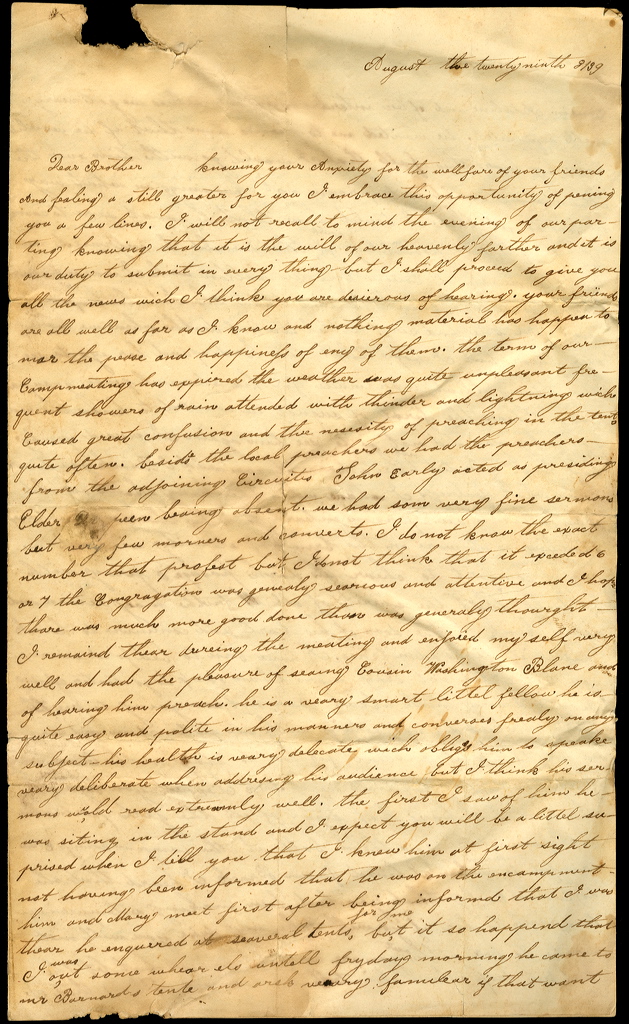 August the twenty ninth 1839
Dear Brother knowing your Anxiety for the wellfare of your friends
And fealing a still greater for you I embrace this opportunity of pening
you a few lines. I will not recall to mind the evening of our par-
ting knowing that it is the will of our heavenly farther and it is
our duty to submit in every thing but I shall proceed to give you
all the news wich I think you are desierous of hearing. your friends
are all well as far as I know and nothing material has happen to
mar the pease and happiness of eny of them. the term of our
Campmeating has expired the weather was quite unpleasant fre-
quent showers of rain attended with thunder and lightning wich
Caused great confusion and the nesesity of preaching in the tent
quite often. besids the local preachers we had the preachers
from the adjoining Circuits John Early acted as presiding
Elder been beaing absent. we had som very fine sermons
but very few morners and converts. I do not know the exact
number that profest but I do not think that it exceded 6
or 7 the Congragation was genealy searious and attentive and I hope
thare was much more good done than was generaly thourght
I remaind thear dureing the meating and enjoied my self very
well and had the pleasure of seaing Cousin Washington Blane and
of hearing him preach. he is a veary smart littel fellow he is
quite easy and polite in his manners and converses frealy on any
subject his health is veary delecate wich obliges him to speake
veary deliberate when addresing his audience but I think his ser-
mons would read extremly well. the first I saw of him he
was siting in the stand and I expect you will be a littel su-
prised when I tell you that I knew him at first sight
not having been informed that he was on the encampment
him and Mary meet first after being informd that I was
thear he enquered at seaveral tents for me but it so happend that
I was out some whear els untell fryday morning he came to
mr Barnards tente and arsk veary familear if that want